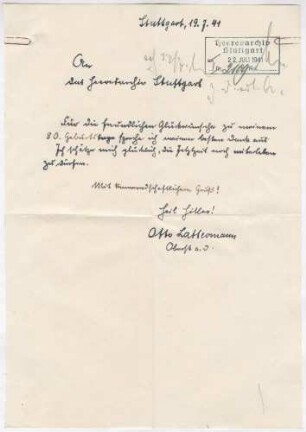 Stuttgart, 19.7.41
Heeresarchiv
Stuttgart
22. JULI 1941
An
das Heeresarchiv Stuttgart
Für die freundlichen Glückwünsche zu meinem
80. Geburtstage spreche ich meinen besten Dank aus.
Ich schätze mich glücklich, die Jetztzeit noch miterleben
zu dürfen.
Mit kameradschaftlichem Gruß!
Heil Hitler!
Otto Lattermann
Oberst a. D.